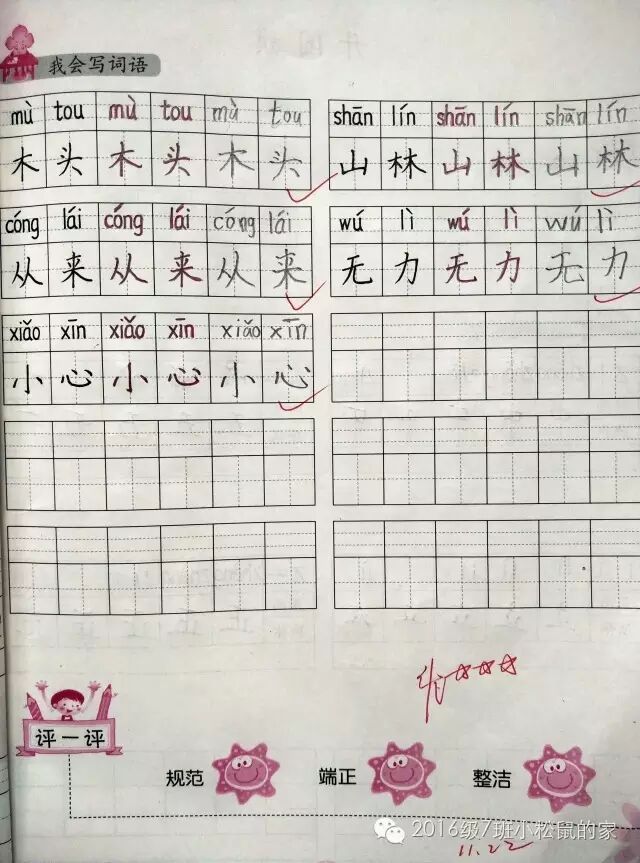 我会写词语
mù tou mù tou mù tou shān lín shān lín shān lín
木 头 木 头 木 头 山 林 山 林 山 林
cóng lái cóng lái cóng lái wú lì wú lì wú lì
从 来 从 来 从 来 无 力 无 力 无 力
xiǎo xīn xiǎo xīn xiǎo xīn
小 心 小 心 小 心
优☆☆☆
评一评
规范 端正 整洁
2016级7班小松鼠的家
11.22